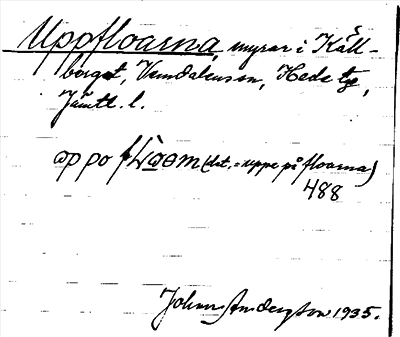 Uppfloarna, myrar i Käll-
berget, Vemdalens sn, Hede tg,
Jämtl. l.
(dat. = uppe på floarna)
488
Johan Anderzton 1935.